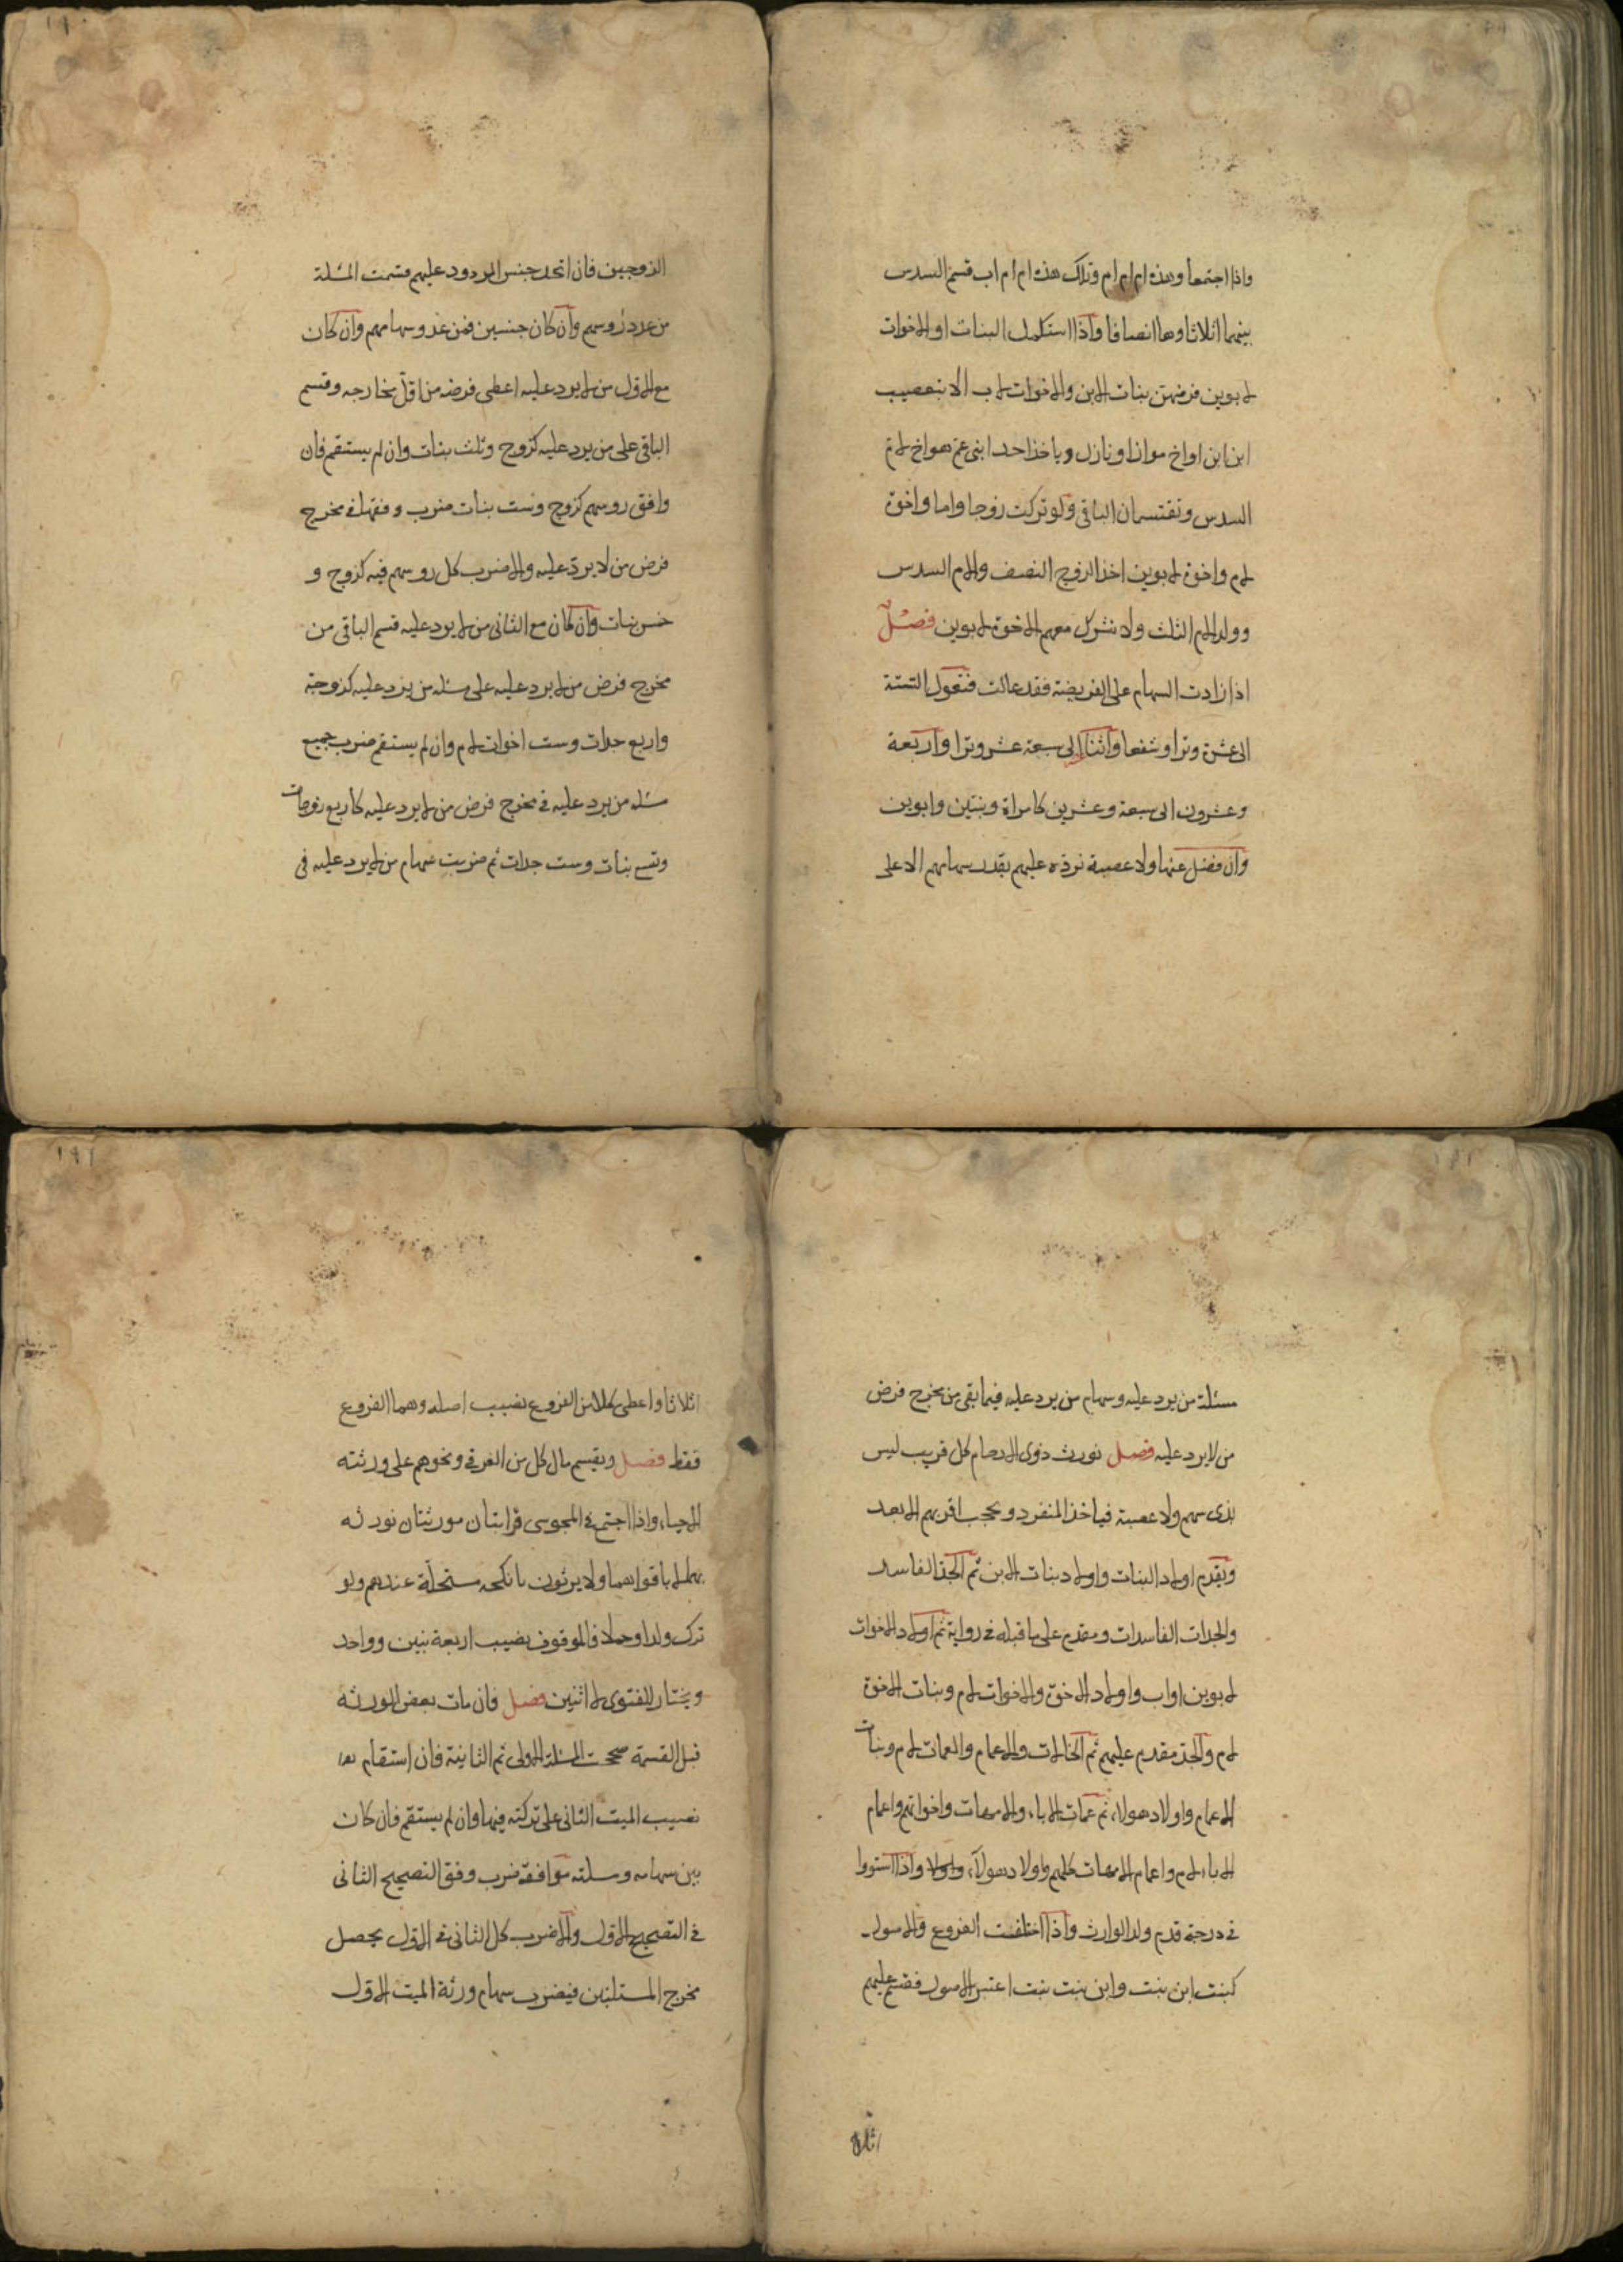 واذا اجتمعا وهذه ام ام ام وتلك هذه ام ام اب قسم السدس
بينهما اثلاثا وهما انصافا واذا استكمل البنات او الاخوات
لابوين فرضهن بنات الابن والاخوات لاب الا بتعصيب
ابن ابن او اخ مواز او نازل وياخذ احد ابني عم هو اخ لام
السدس ويقتسمان الباقي ولو تركت زوجا واما واخوة
لام واخوة لابوين اخذ الزوج النصف والام السدس
وولد الام الثلث ولا نشرك معهم الاخوة لابوين فصل
اذا زادت السهام على الفريضة فقد عالت فتعول الستة
الى عشرة وترا وشفعا واثنا الى سبعة عشر وترا واربعة
وعشرون الى سبعة وعشرين كامراة وبنتين وابوين
وان فضل عنها ولا عصبة نرده عليهم بقدر سهامهم الا على
الزوجين فان اتحد جنس المردود عليهم قسمت المسئلة
من عدد روسهم وان كان جنسين فمن عدد سهامهم وان كان
مع الاول من لا يرد عليه اعطى فرضه من اقل مخارجه وقسم
الباقي على من يرد عليه كزوج وثلث بنات وان لم يستقم فان
وافق روسهم كزوج وست بنات ضرب وفقها في مخرج
فرض من لا يرد عليه والا ضرب كل روسهم فيه كزوج و
خمس بنات وان كان مع الثاني من لا يرد عليه قسم الباقي من
مخرج فرض من لا يرد عليه على مسئلة من يرد عليه كزوجة
واربع جدات وست اخوات لام وان لم يستقم ضرب جميع
مسئلة من يرد عليه في مخرج فرض من لا يرد عليه كاربع زوجات
وتسع بنات وست جدات ثم ضربت سهام من لا يرد عليه في
مسئلة من يرد عليه وسهام من يرد عليه فيما بقي من مخرج فرض
من لا يرد عليه فصل نورث ذوى الارحام كل قريب ليس
بذى سهم ولا عصبة فياخذ المنفرد ويحجب اقربهم الابعد
ويقدم اولاد البنات واولاد بنات الابن ثم الجد الفاسد
والجدات الفاسدات ومقدم على ما قبله في رواية ثم اولاد الاخوات
لابوين او اب واولاد الاخوة والاخوات لام وبنات الاخوة
لام والجد مقدم عليهم ثم الخالات والاعمام والعمات لام وبنات
الاعمام واولاد هولاء ثم عمات الاباء والامهات واخواتهم واعمام
الاباء لام واعمام الامهات كلهم واولاد هولاء واولا واذا استووا
في درجة قدم ولد الوارث واذا اختلفت الفروع والاصول
كبنت ابن بنت وابن بنت بنت اعتبر الاصول فقسم عليهم
اثلاثا
اثلاثا واعطى كلا من الفروع نصيب اصله وهما الفروع
فقط فصل ويقسم مال كل من الغرقى ونحوهم على ورثته
الاحياء واذا اجتمع في المجوسى قرابتان مورثتان نورثه
بهما لا باقواهما ولا يرثون بانكحة مستحلة عندهم ولو
ترك ولدا وحملا فالموقوف نصيب اربعة بنين وواحد
ويختار للفتوى لا اثنين فصل فان مات بعض الورثة
قبل القسمة صححت المسئلة الاولى ثم الثانية فان استقام
نصيب الميت الثاني على تركته فيها وان لم يستقم فان كان
بين سهامه ومسئلته موافقة ضرب وفق التصحيح الثاني
في التصحيح الاول والا ضرب كل الثاني في الاول يحصل
مخرج المسئلتين فيضرب سهام ورثة الميت الاول